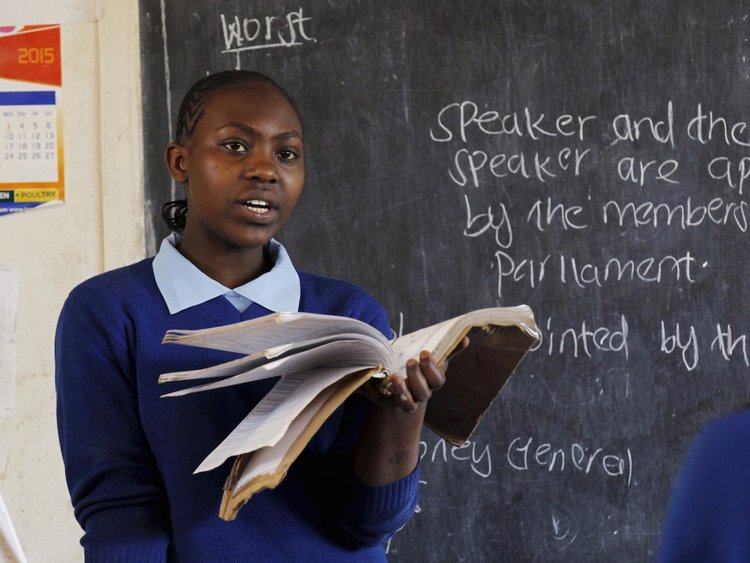 2015
WED THU FRI SAT
3 4 5 6
10 11 12 13
17 18 19 20
24 25 26 27
EN • POULTRY
Worst
speaker and the
speaker are ap
by the members
parliament.
ointed by th
ney General